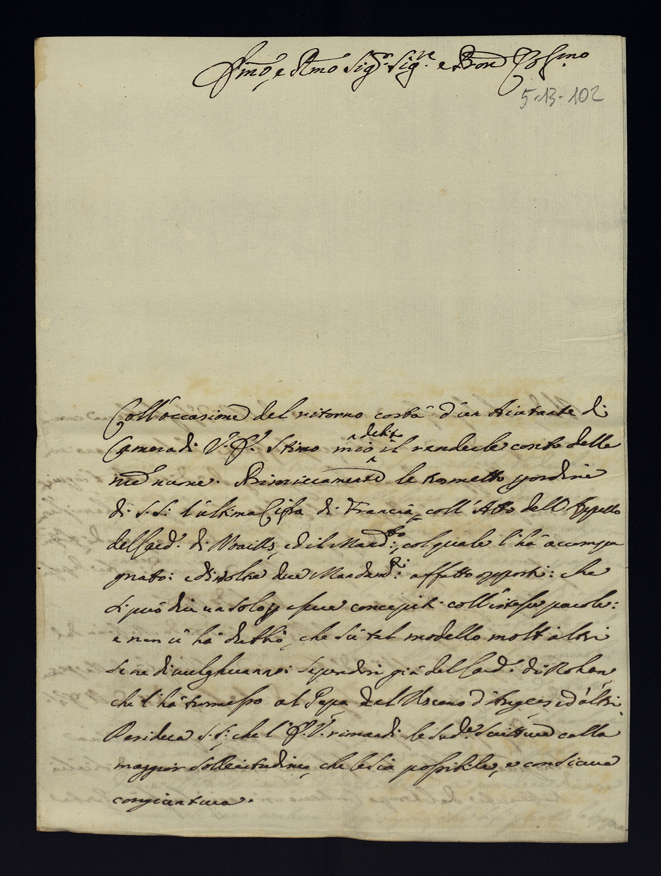 Em̃o, e Rmo Sig.r Sig.re e Pron Col.mo
5-13-102
Coll'occasione del ritorno costà d'un Aiutante di
Camera di V.ra E. Stimo mio debito il renderle conto delle
nuove. Primieramente le trasmetto per ordine
di S. S. l'ultima Cifra di Francia coll'Atto dell'Appello
del Card. di Noailles, ed il Mand.to, col quale l'hà accompa
gnato: ed inoltre due Mandam.ti affatto opposti: che
si può dir un solo, per esser concepiti coll'istesse parole:
e non ci hà dubbio, che sù tal modello molti altri
se ne divulgheranno: sapendosi già del Card. di Rohan,
che l'hà trasmesso al Papa dal Vescovo d'Angers, ed altri.
Desidera S. S. che l'E. V. rimandi le sud.e Scritture colla
maggior sollecitudine, che le sia possibile, e con sicura
congiuntura.